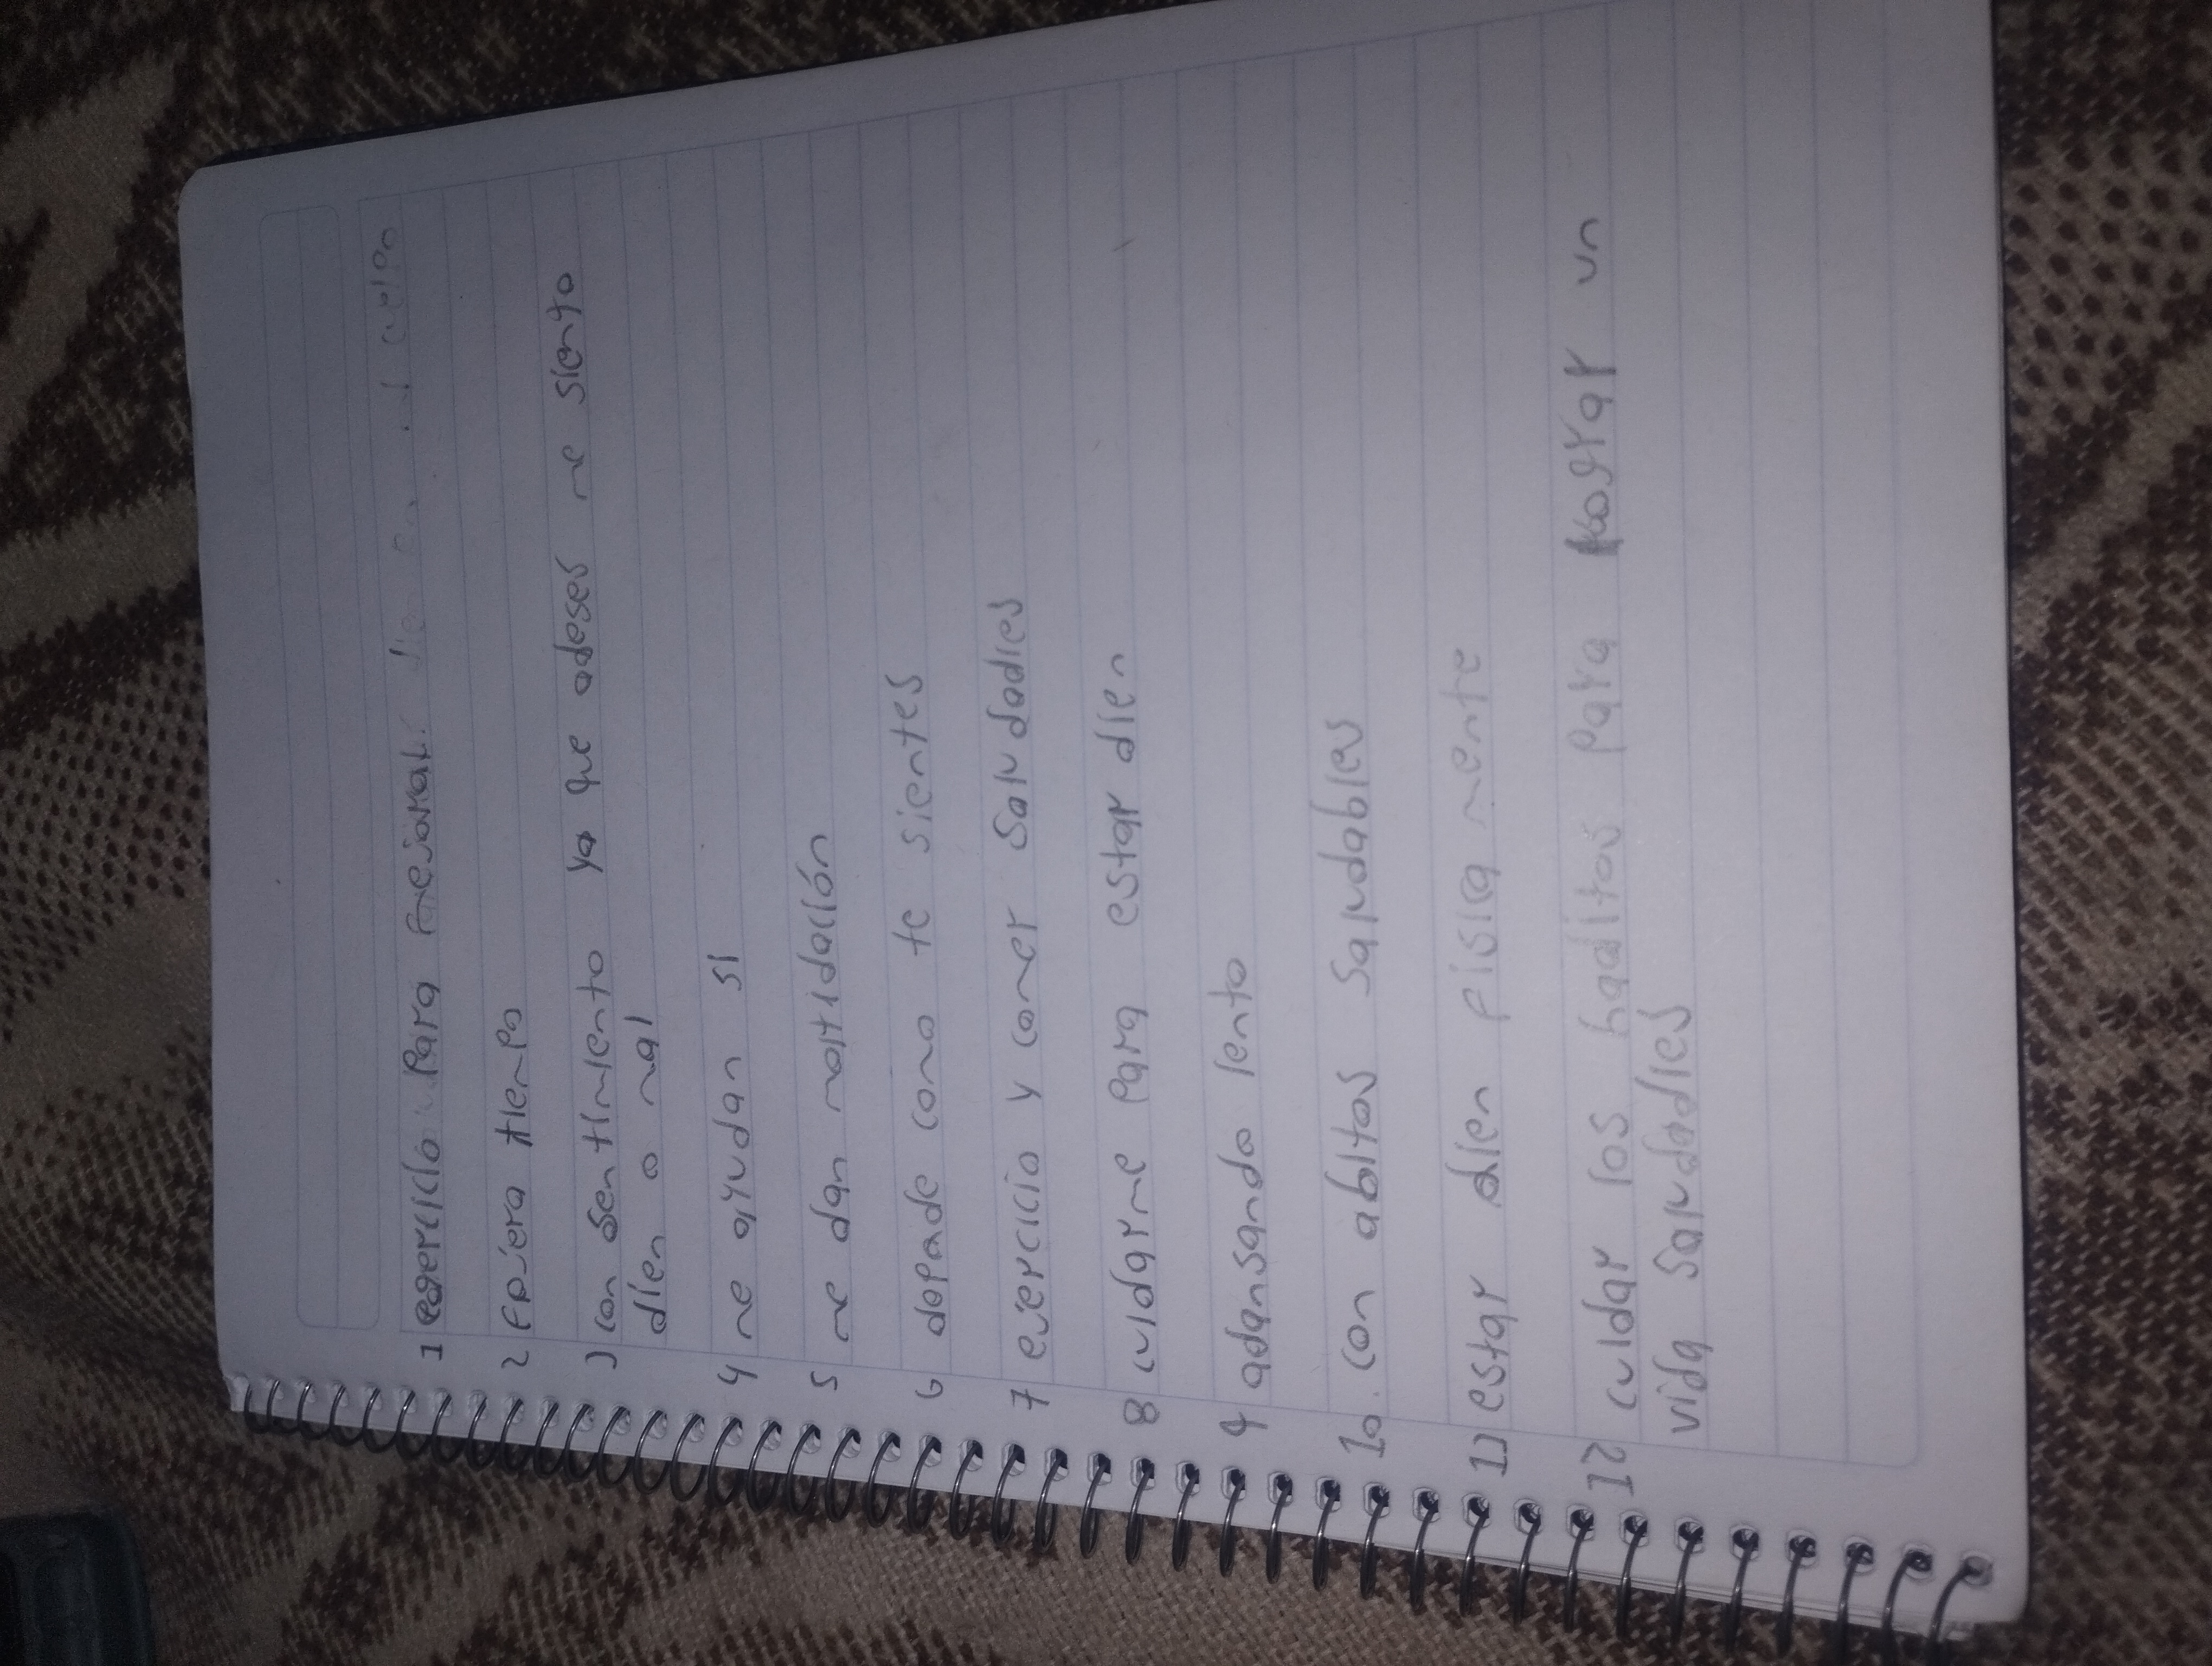 1 egercicio para
2 fuiera tienpo
3 con sentimiento ya que adeses me siento
dien o mal
4 me ayudan si
5 me dan motidación
6 depade como te sientes
7 ejercicio y comer saludadles
8 cuidarme para estar dien
9 adansando lento
10. con abitos saludables
11 estar dien fisica mente
12 cuidar los haditos para lograr un
vida saludadles